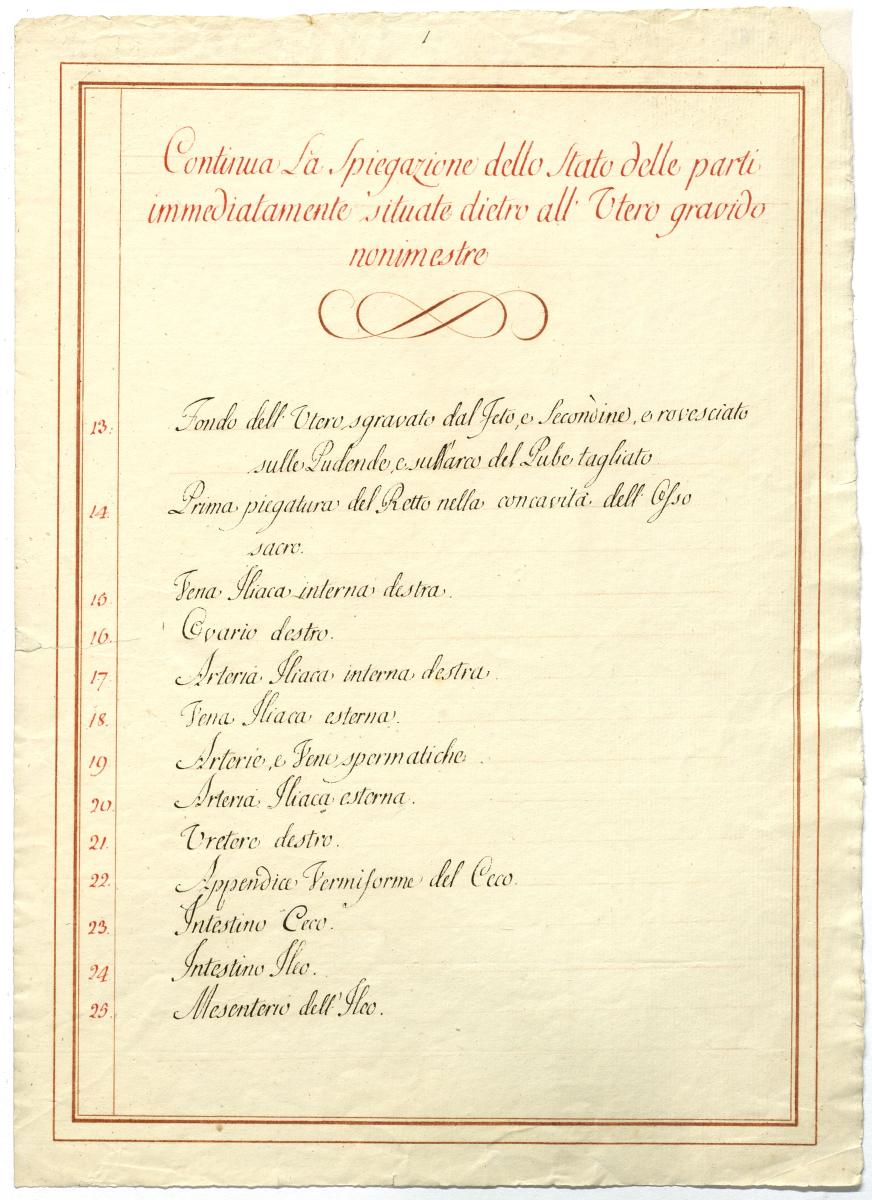 1
Continua La Spiegazione dello Stato delle parti
immediatamente situate dietro all' Utero gravido
nonimestre
13. Fondo dell' Utero, sgravato dal Feto, e Secondine, e rovesciato
sulle Pudende, e sull'arco del Pube tagliato
14. Prima piegatura del Retto nella concavità dell' Osso
sacro.
15. Vena Iliaca interna destra.
16. Ovario destro.
17. Arteria Iliaca interna destra.
18. Vena Iliaca esterna.
19 Arterie, e Vene spermatiche.
20. Arteria Iliaca esterna.
21. Uretere destro.
22. Appendice Vermiforme del Ceco.
23. Intestino Ceco.
24 Intestino Ileo.
25. Mesenterio dell' Ileo.